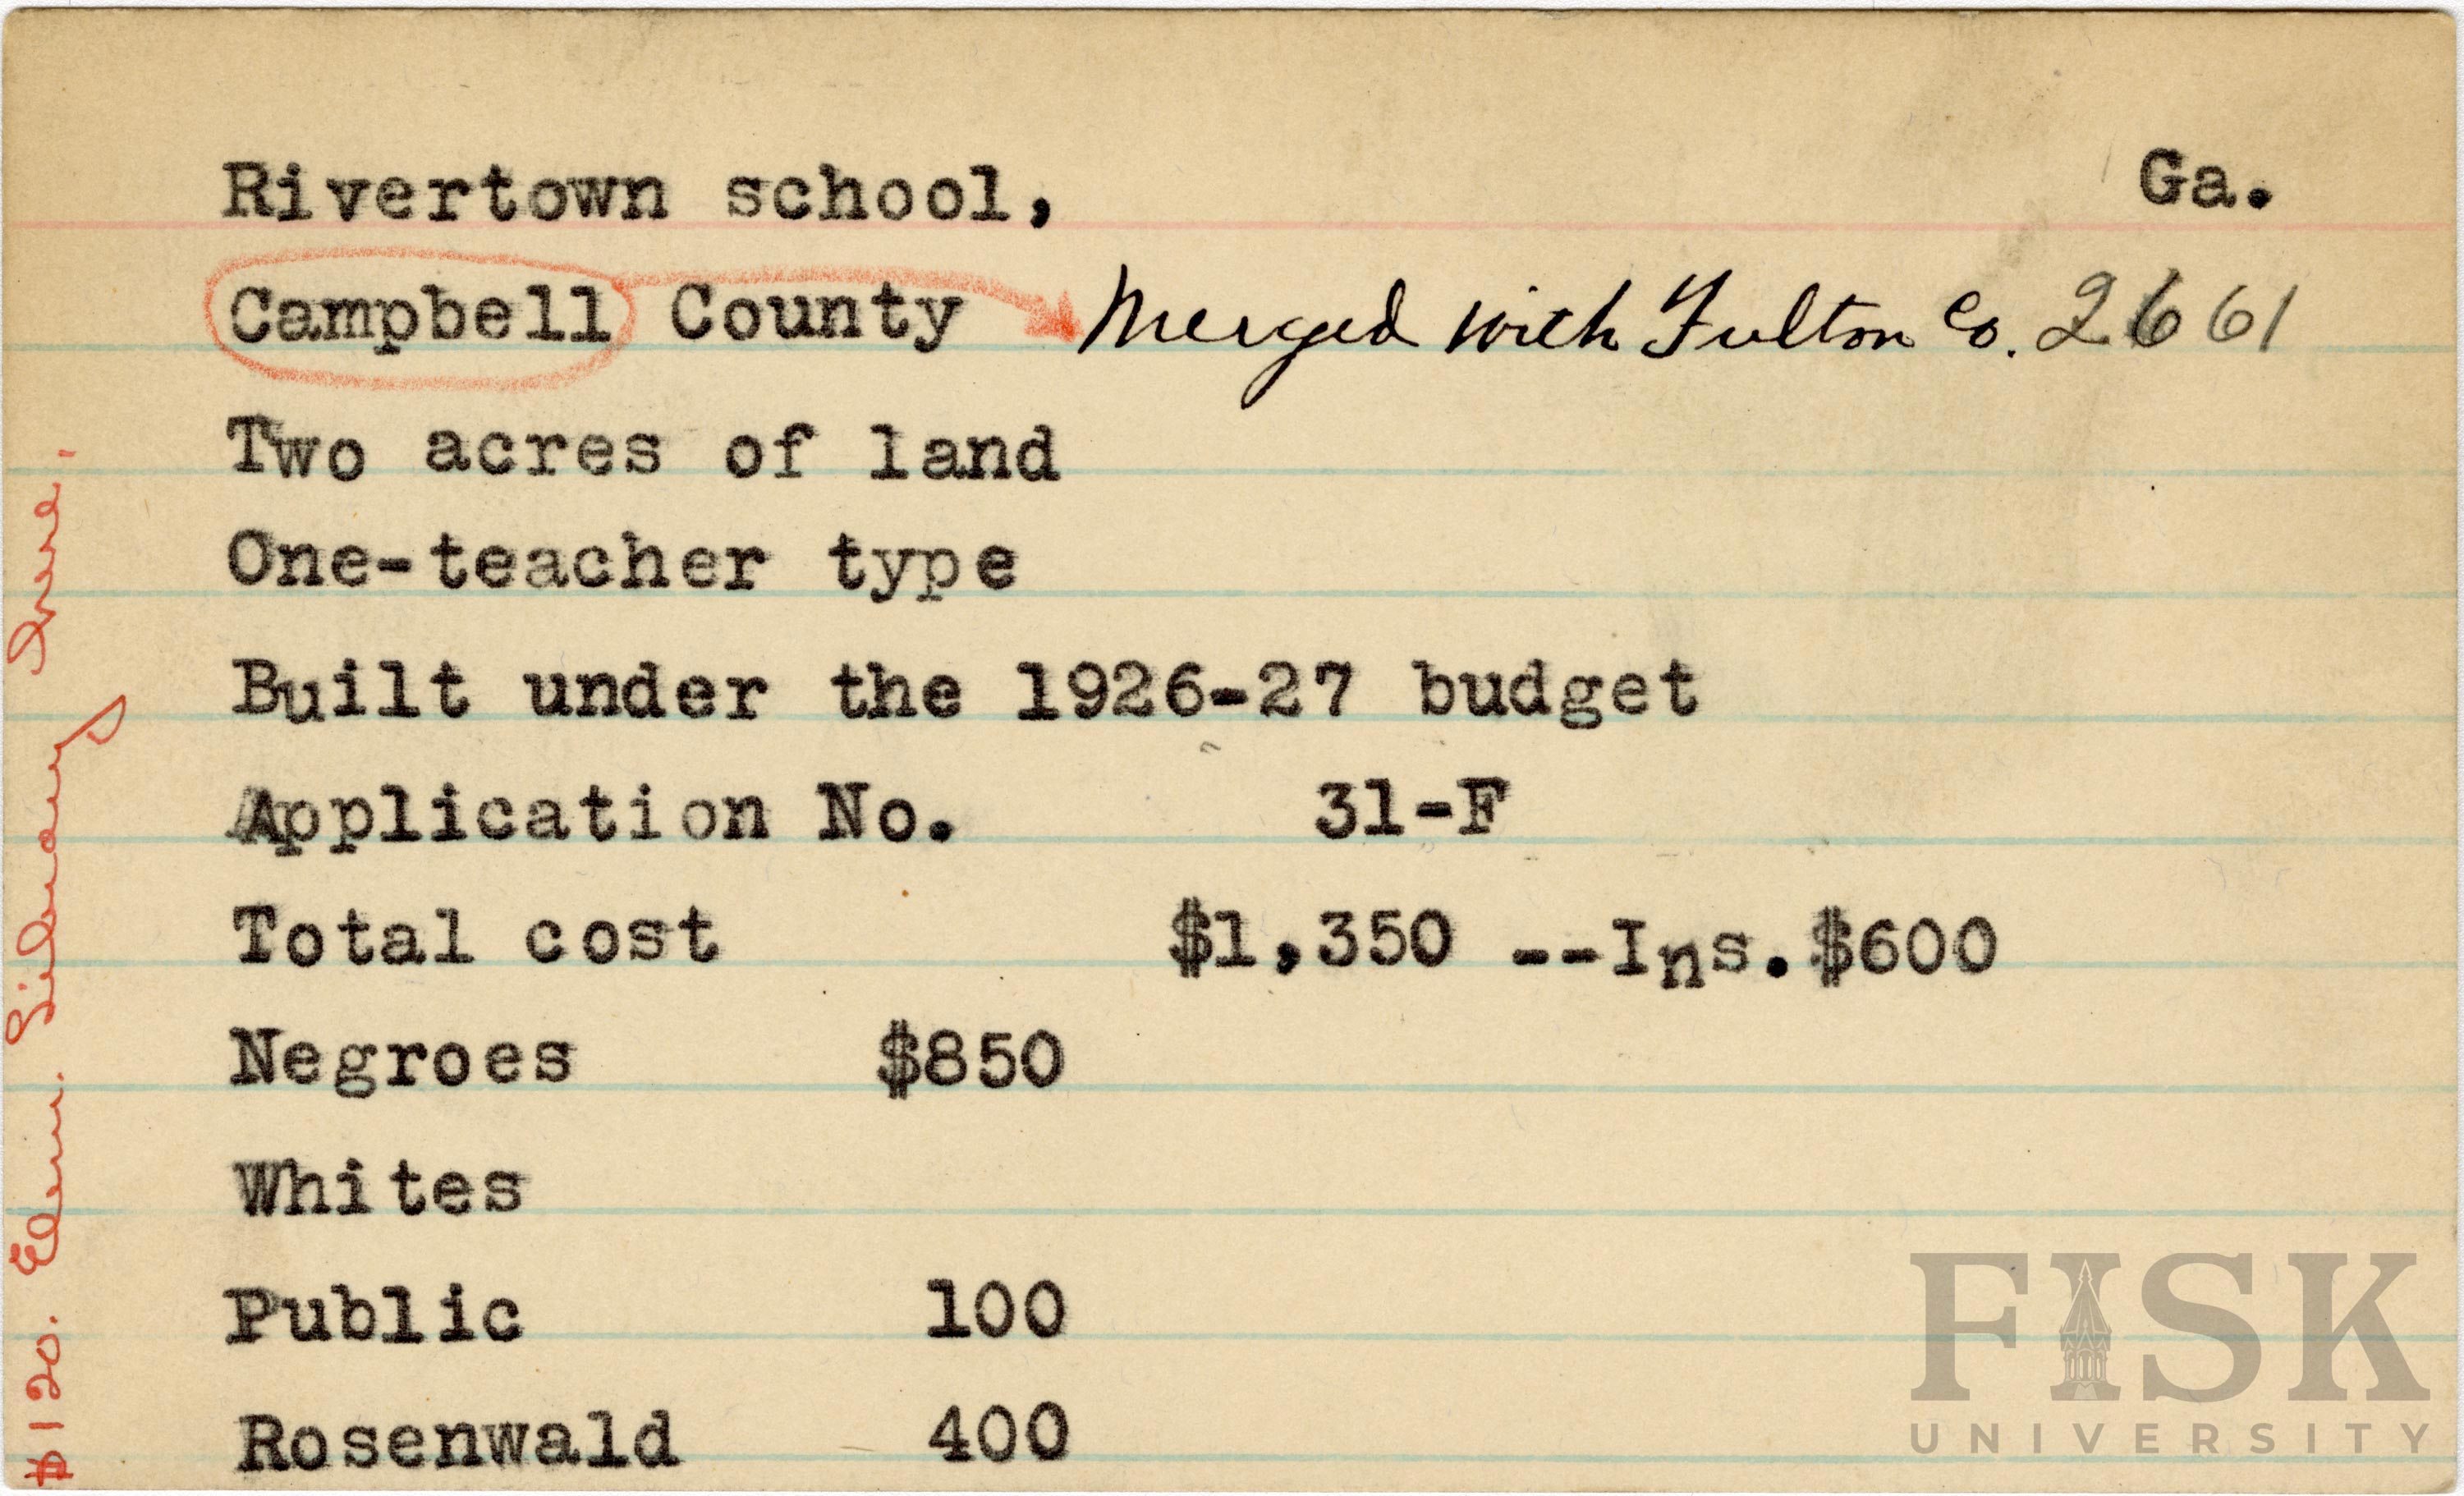 Rivertown school, Ga.
Campbell County Merged with Fulton Co. 2661
Two acres of land
One-teacher type
Built under the 1926-27 budget
Application No. 31-F
Total cost $1,350 --Ins.$600
Negroes $850
Whites
Public 100
Rosenwald 400
$120. Elem. Library
FISK
UNIVERSITY